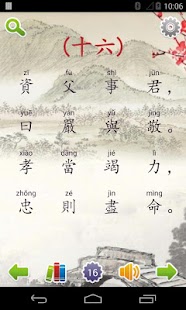 10:06
(十六)
zī fù shì jūn
資父事君,
yuē yán yǔ jìng
曰嚴與敬。
xiào dāng jié lì
孝當竭力,
zhōng zé jìn mìng
忠則盡命。
16